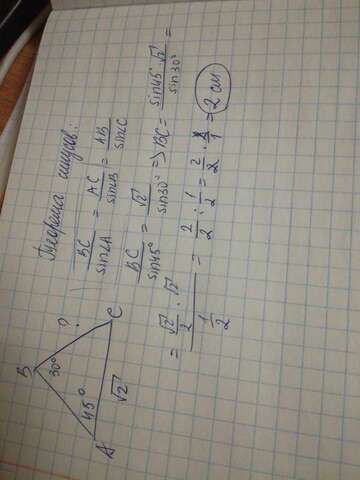 B
?
30°
45°
A
C
√2
Теорема синусов:
BC/sin∠A = AC/sin∠B = AB/sin∠C
BC/sin45° = √2/sin30° => BC = sin45°·√2/sin30° =
= (√2/2 · √2)/(1/2) = 2/2 : 1/2 = 2/2 · 2/1 = 2 см